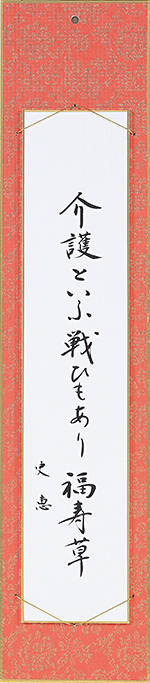 介護といふ戦ひもあり福寿草
史恵